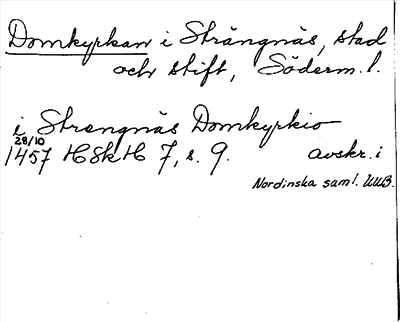 Domkyrkan i Strängnäs, stad
och stift, Söderm. l.
i Strengnäs Domkyrkio
28/10
1457 HSkH 7, s. 9. avskr. i
Nordinska saml. UUB.